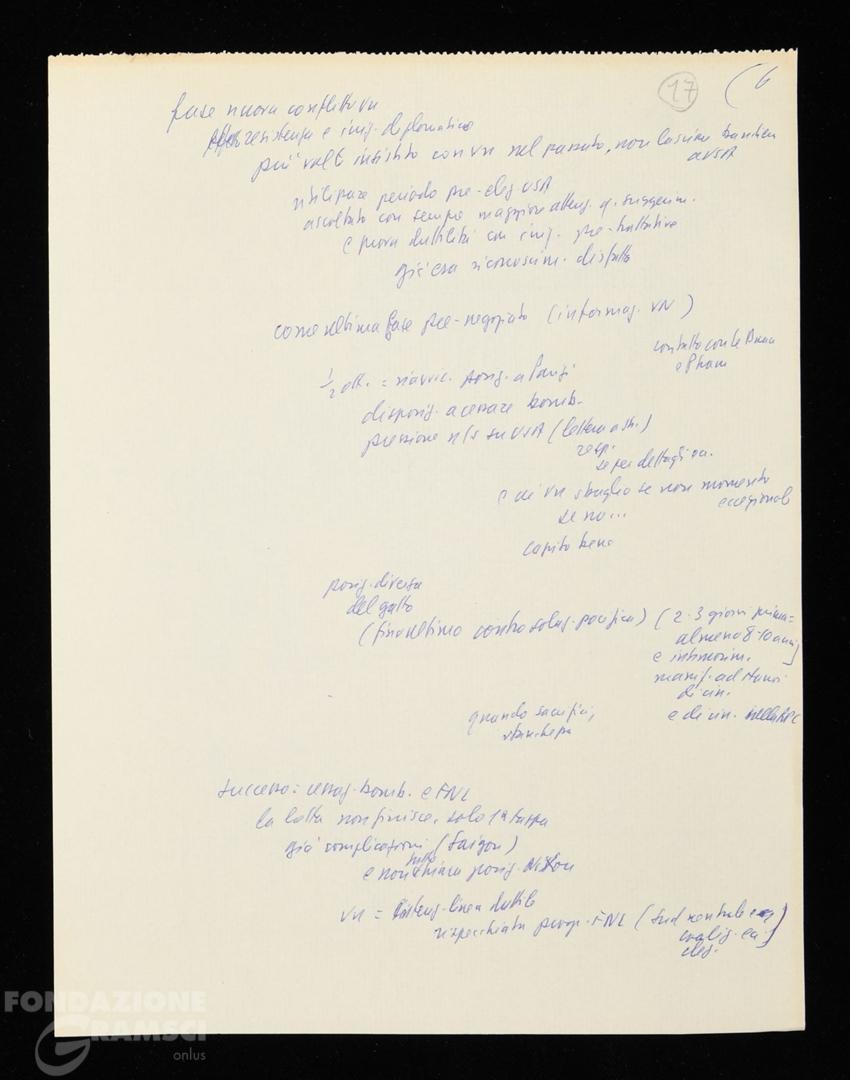 17
(6
fase nuova conflitto vn
resistenza e iniz. diplomatica
più volte insistito con vn nel passato, non lasciare bandiera
a USA
utilizzare periodo pre-elez USA
ascoltato con sempre maggiore attenz. q. suggerim.
e prova duttilità con iniz. pre-trattative
già era riconoscim. disfatta
come ultima fase pre-negoziato (informaz. VN)
contatto con Le Duan
e Pham
1/2 ott. = riavvic. posiz. a Parigi
disposiz. a cessare bomb.
pressione n/s su USA (lettera a st.)
resp.
se per dettagli va.
e di vn sbaglio se non momento
eccezionale
se no...
capito bene
posiz. diversa
del gatto
(fino ultimo contro soluz. pacifica) (2-3 giorni prima =
almeno 8-10 anni)
e intimorim.
manif. ad Hanoi
di cin.
e di cin. nella RPC
quando sacrifici,
stanchezza
successo = cessaz. bomb. e FNL
la lotta non finisce, solo 1a tappa
già complicazioni (Saigon)
e non chiara posiz. Nixon
vn = linea duttile
rispecchiata progr. FNL (Sud neutrale
coaliz.
elez.
FONDAZIONE
GRAMSCI
onlus